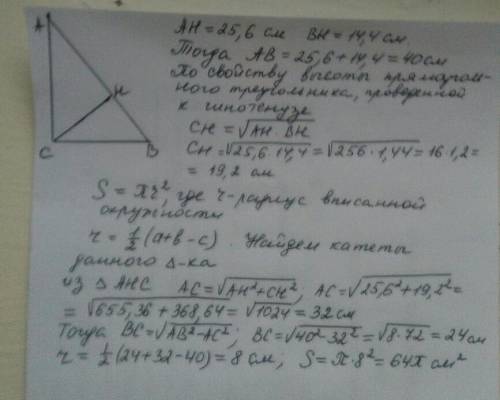 A
H
C
B
AH = 25,6 см BH = 14,4 см.
Тогда AB = 25,6 + 14,4 = 40 см
По свойству высоты прямоуголь-
ного треугольника, проведенной
к гипотенузе
CH = √AH · BH
CH = √25,6 · 14,4 = √256 · 1,44 = 16 · 1,2 =
= 19,2 см
S = πr², где r - радиус вписанной
окружности
r = ½(a+b-c). Найдем катеты
данного Δ-ка
из Δ AHC AC = √AH² + CH², AC = √25,6² + 19,2² =
= √655,36 + 368,64 = √1024 = 32 см
Тогда BC = √AB² - AC²; BC = √40² - 32² = √8 · 72 = 24 см
r = ½(24 + 32 - 40) = 8 см; S = π · 8² = 64π см²